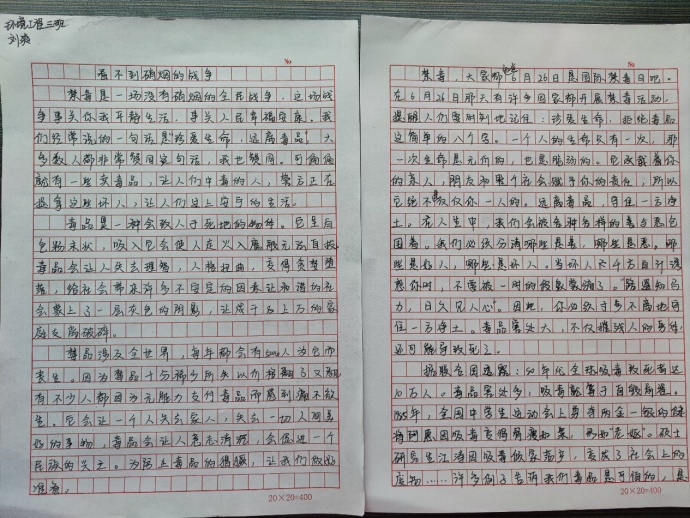 环境工程三班
刘爽
No
看不到硝烟的战争
禁毒是一场没有硝烟的全民战争，这场战
争事关你我平静生活，事关人民幸福安康。我
们经常说的一句话是"珍爱生命，远离毒品"大
多数人都非常赞同这句话，我也赞同。可偏偏
就有一些卖毒品，让人们中毒的人，警方正在
捉拿这些坏人，让人们过上安宁的生活。
毒品是一种会致人于死地的物件。它呈白
色粉末状，吸入它会使人在火入魔般无法自拔
毒品会让人失去理智，人格扭曲，变得贪婪堕
落，给社会带来许多不安定的因素让和谐的社
会蒙上了一层灰色的阴影，让成千上万的家
庭支离破碎。
毒品涉及全世界，每年都会有人为它而
丧生。因为毒品十分稀少所以价格翻了又翻
有不少人都因为无能力支付毒品而感到痛不欲
生。它会让一个人失去家人，失去一切人间美
好的事物，毒品会让人意志消沉，会促进一个
民族的灭亡。为防止毒品的猖獗，让我们做好
准备。
20×20=400
No
禁毒，大家都知道6月26日是国际禁毒日吧。
在6月26日那天有许多国家都开展禁毒活动，
提醒人们要时刻地记住：珍爱生命，拒绝毒品
这简单的八个字。一个人的生命只有一次，那
一次生命是无价的，也是脆弱的。它承载着你
的亲人，朋友和整个社会赋予你的责任，所以
它绝不是仅你一人的。远离毒品，守住一方净
土。在人生中，我们会被各种各样的善与恶包
围着。我们必须分清哪些是善，哪些是恶。哪
些是好人，哪些是坏人。当坏人千方百计诱
惑你时，不要被一时的假象蒙骗了。"路遥知马
力，日久见人心"。因此，你必须寸步不离地守
住一方净土。毒品害处大，不仅摧残人的身体，
还可能导致死亡。
据联合国透露：90年代全球吸毒致死者达
10万人。毒品害处多，吸毒就等于自毁前程。
年，全国中学生运动会上荣获两金一银的健
将阿恩因吸毒变得骨瘦如柴，
研究生江涛因吸毒倾家荡产，变成了社会上的
废物……许多例子告诉我们毒品是可怕的，是
20×20=400